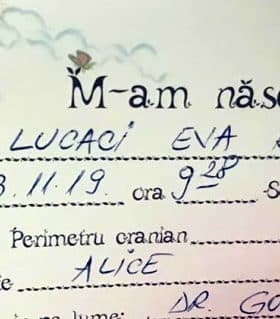 M-am năs
LUCACI EVA
3.11.19. ora 9 28 S
Perimetru cranian
e ALICE
pe lume: DR GO